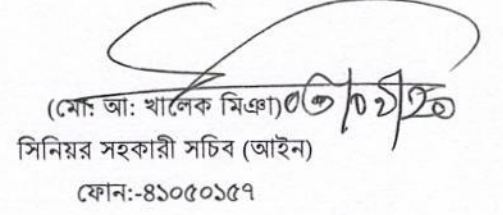 (মোঃ আ: খালেক মিঞা)
সিনিয়র সহকারী সচিব (আইন)
ফোন:-৪১০৫০১৫৭